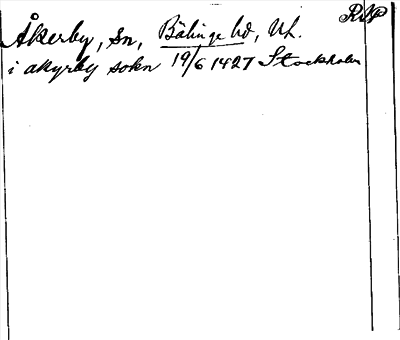 RAP
Åkerby, sn, Bälinge hd, Upl.
i akyrby sokn 19/6 1427 Stockholm